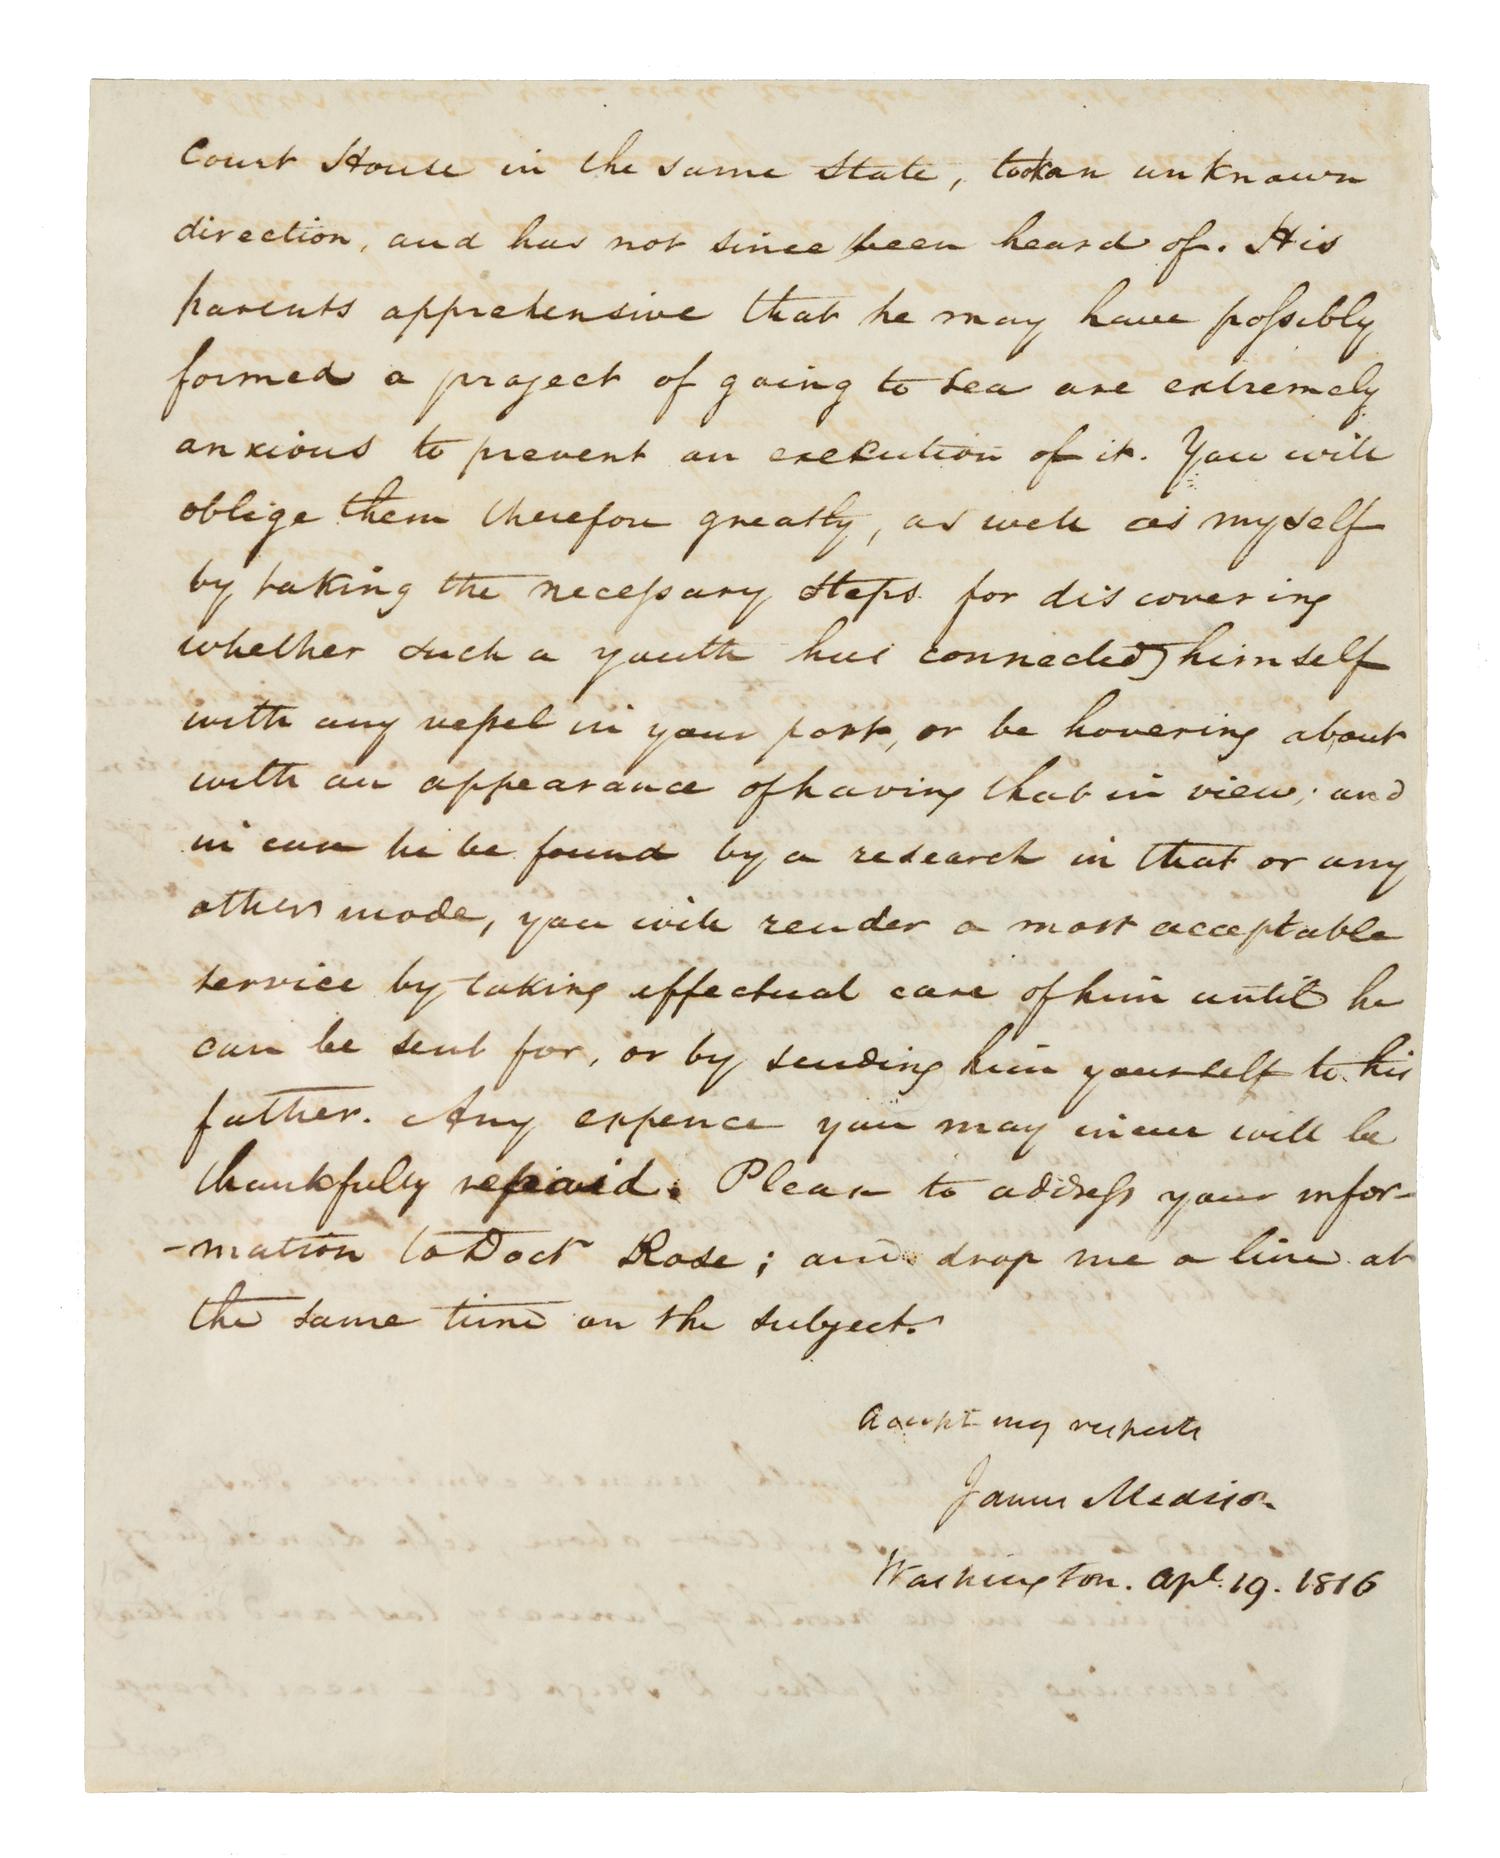 Court House in the same State, took an unknown
direction, and has not since been heard of. His
parents apprehensive that he may have possibly
formed a project of going to sea are extremely
anxious to prevent an execution of it. You will
oblige them therefore greatly, as well as myself
by taking the necessary steps for discovering
whether such a youth has connected himself
with any vessel in your port, or be hovering about
with an appearance of having that in view; and
in case he be found by a research in that or any
other mode, you will render a most acceptable
service by taking effectual care of him until he
can be sent for, or by sending him yourself to his
father. Any expence you may incur will be
thankfully repaid. Please to address your infor-
-mation to Doctr Rose; and drop me a line at
the same time on the subject.
Accept my respects
James Madison
Washington. Apl. 19. 1816